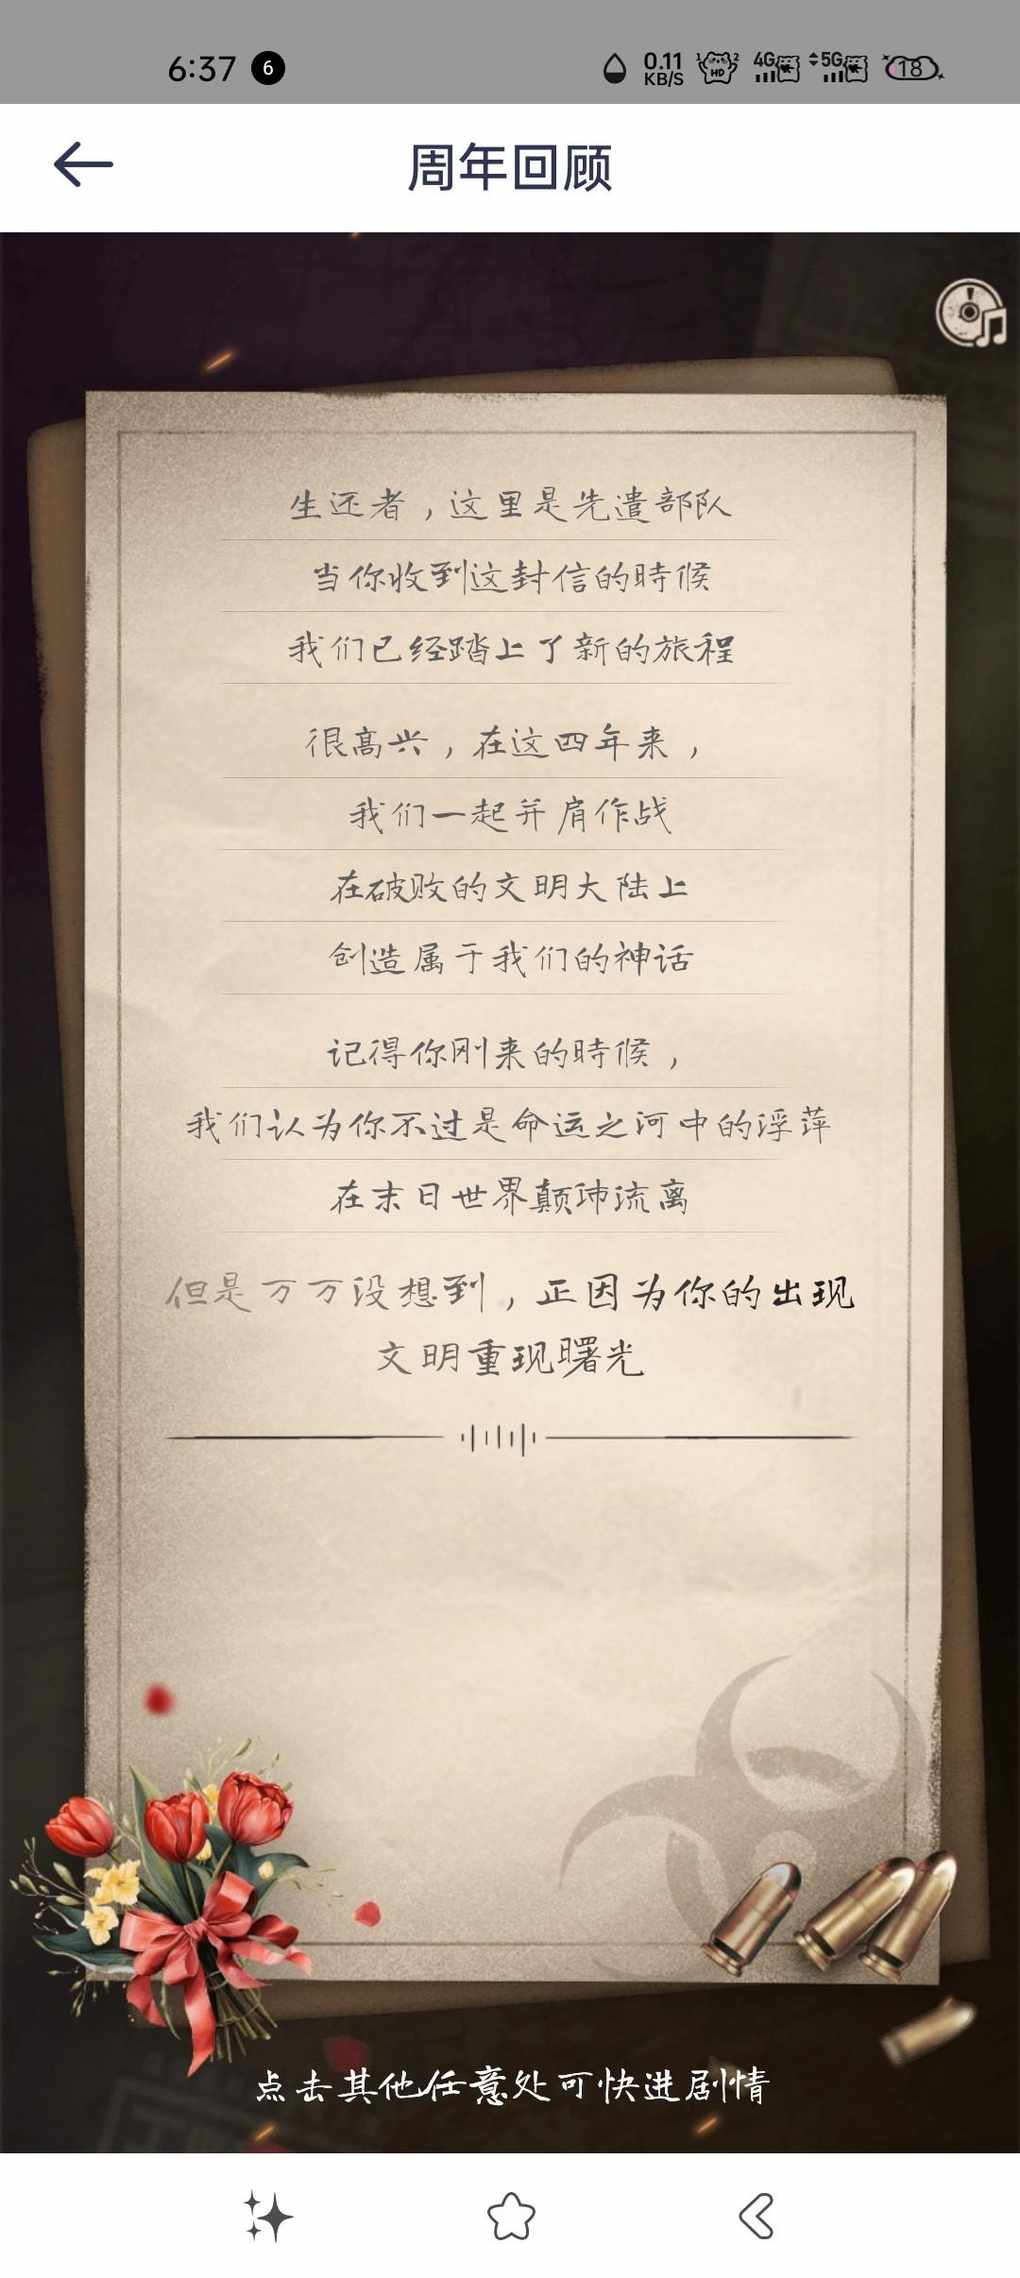 6:37 6 0.11 KB/S HD 4G 5G 18
周年回顾
生还者，这里是先遣部队
当你收到这封信的時候
我们已经踏上了新的旅程
很高兴，在这四年来，
我们一起并肩作战
在破败的文明大陆上
创造属于我们的神话
记得你刚来的時候，
我们认为你不过是命运之河中的浮萍
在末日世界颠沛流离
但是万万没想到，正因为你的出现
文明重现曙光
点击其他任意处可快进剧情